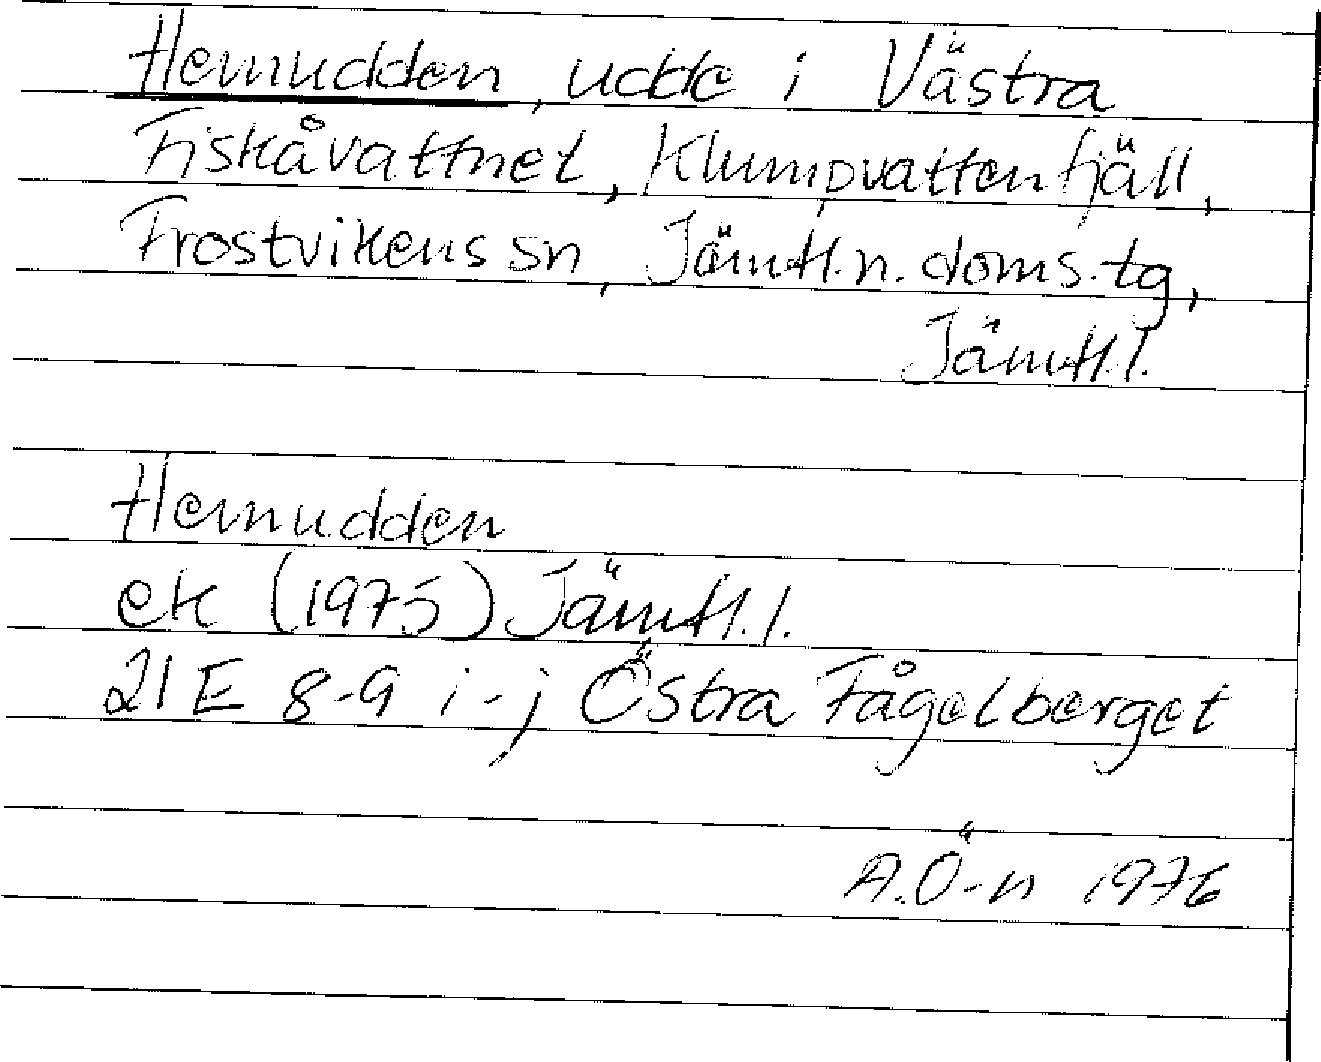 Hemudden, udde i Västra
Fiskåvattnet, Klumpvattenfjäll,
Frostvikens sn, Jämtl.n. doms.tg,
Jämtl.l.
Hemudden
ek (1975) Jämtl.l.
21E 8-9 i-j Östra Fågelberget
A.Ö-n 1976